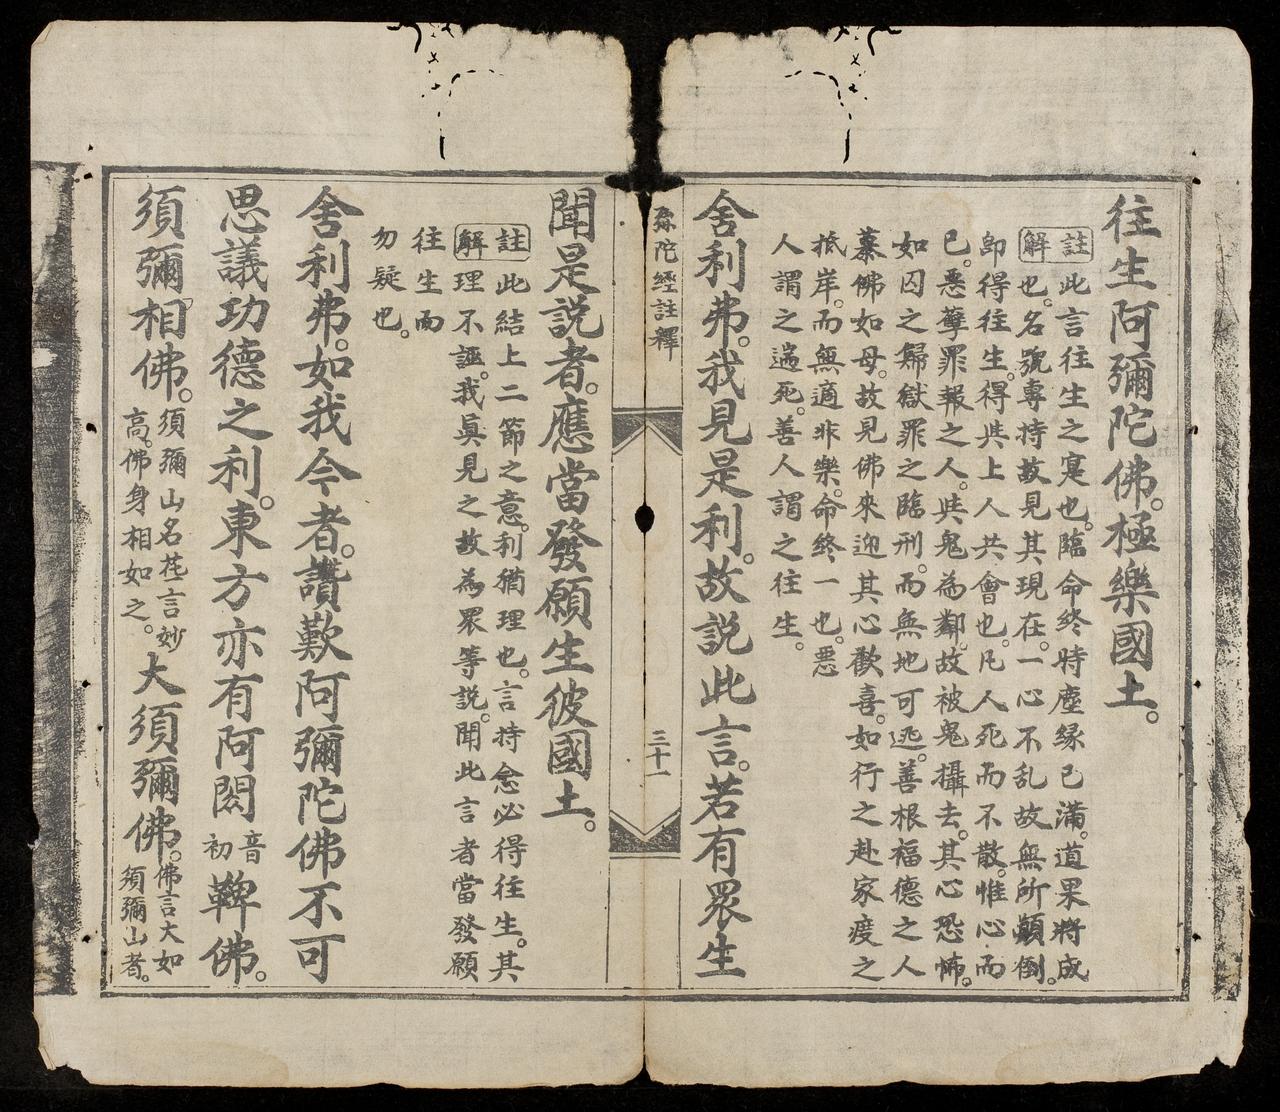 往生阿彌陀佛。極樂國土。
註解
此言往生之寔也。臨命終時塵緣已滿。道果將成
也。名號專持故見其現在。一心不乱故無所顛倒。
即得往生。得與上人共會也。凡人死而不散。惟心而
已。惡孽罪報之人。與鬼為鄰。故被鬼攝去。其心恐怖。
如囚之歸獄罪之臨刑。而無地可逃。善根福德之人
慕佛如母。故見佛來迎其心歡喜。如行之赴家渡之
抵岸。而無適非樂。命終一也。惡
人謂之遄死。善人謂之往生。
舍利弗。我見是利。故説此言。若有眾生
弥陀經註釋
三十一
聞是説者。應當發願生彼國土。
註解
此結上二節之意。利猶理也。言持念必得往生。其
理不誣。我眞見之故為眾等説。聞此言者當發願
往生而
勿疑也。
舍利弗。如我今者。讚歎阿彌陀佛不可
思議功德之利。東方亦有阿閦音初鞞佛。
須彌相佛。須彌山名茈言妙高。佛身相如之。大須彌佛。佛言大如須彌山者。